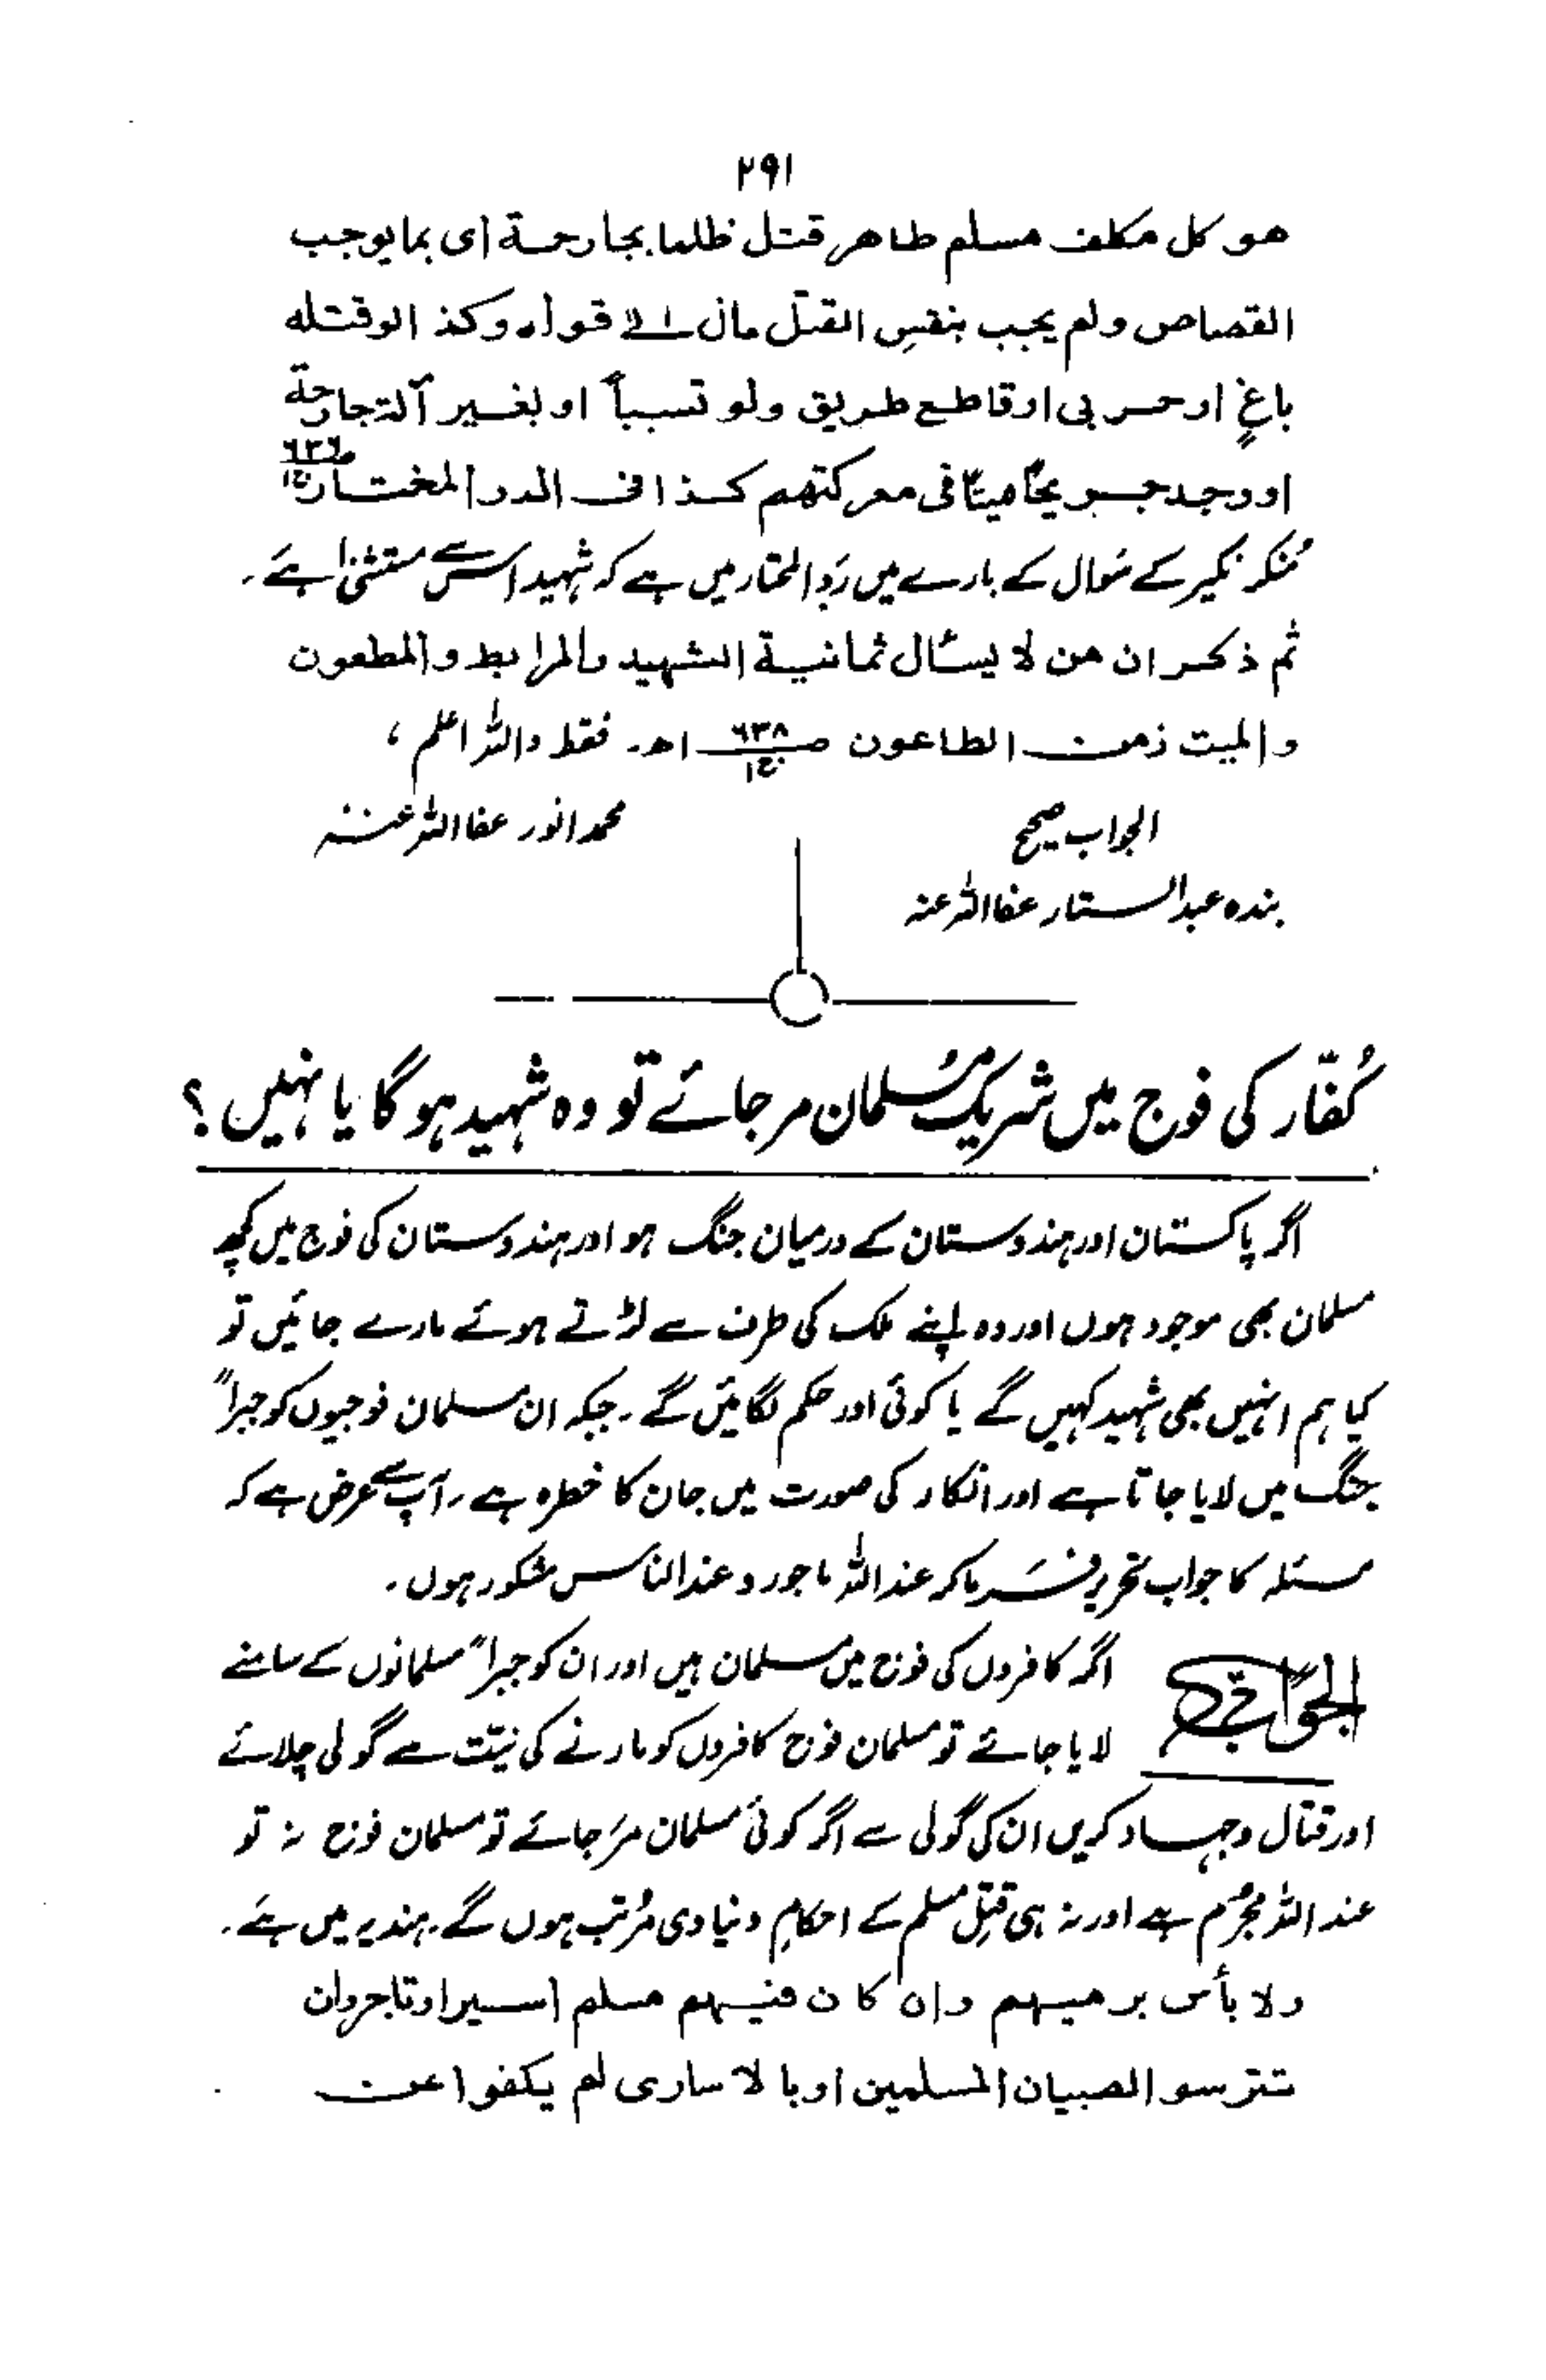 ۲۹۱
هو كل مكلف مسلم طاهر قتل ظلما بجارحة اى بما يوجب
القصاص ولم يجب بنفسِ القتل مال الى قوله وكذا لو قتله
باغٍ او حربى او قاطع طريق ولو تسبباً او بغير آلة جارحة
او وجد جريحًا ميتًا فى معركتهم كذا فى الدر المختار ص۶۳۶ ج۱
مُنکر نکیر کے سَوال کے بارے میں رَدِّ المحتار میں ہے کہ شہید اس سے مستثنیٰ ہے۔
ثم ذكر ان من لا يسئال ثمانية الشهيد والمرابط والمطعون
والميت زمن الطاعون ص۶۳۸ ج۱ اھ۔ فقط واللہ اعلم ،
الجواب صحیح
محمد انور عفا اللہ عنہ
بندہ عبدالستار عفا اللہ عنہ
کُفّار کی فوج میں شریک مُسلمان مر جائے تو وہ شہید ہو گا یا نہیں ؟
اگر پاکستان اور ہندوستان کے درمیان جنگ ہو اور ہندوستان کی فوج میں کچھ
مسلمان بھی موجود ہوں اور وہ اپنے ملک کی طرف سے لڑتے ہوئے مارے جائیں تو
کیا ہم انہیں بھی شہید کہیں گے یا کوئی اور حکم لگائیں گے ۔ جبکہ ان مسلمان فوجیوں کو جبراً
جنگ میں لایا جاتا ہے اور انکار کی صورت میں جان کا خطرہ ہے ۔ آپ سے عرض ہے کہ
مسئلہ کا جواب تحریر فرما کر عنداللہ ماجور و عندالناس مشکور ہوں ۔
الجواب
اگر کافروں کی فوج میں مسلمان ہیں اور ان کو جبراً مسلمانوں کے سامنے
لایا جائے تو مسلمان فوج کافروں کو مارنے کی نیّت سے گولی چلائے
اور قتال و جہاد کریں ان کی گولی سے اگر کوئی مسلمان مَر جائے تو مسلمان فوج نہ تو
عند اللہ مجُرم ہے اور نہ ہی قتِل مسلم کے احکامِ دنیاوی مُرتب ہوں گے۔ ہندیہ میں ہے۔
ولا بأس برميهم وان كان فيهم مسلم اسير او تاجر وان
تترسوا لصبيان المسلمين او با لاسارى لم يكفوا عن